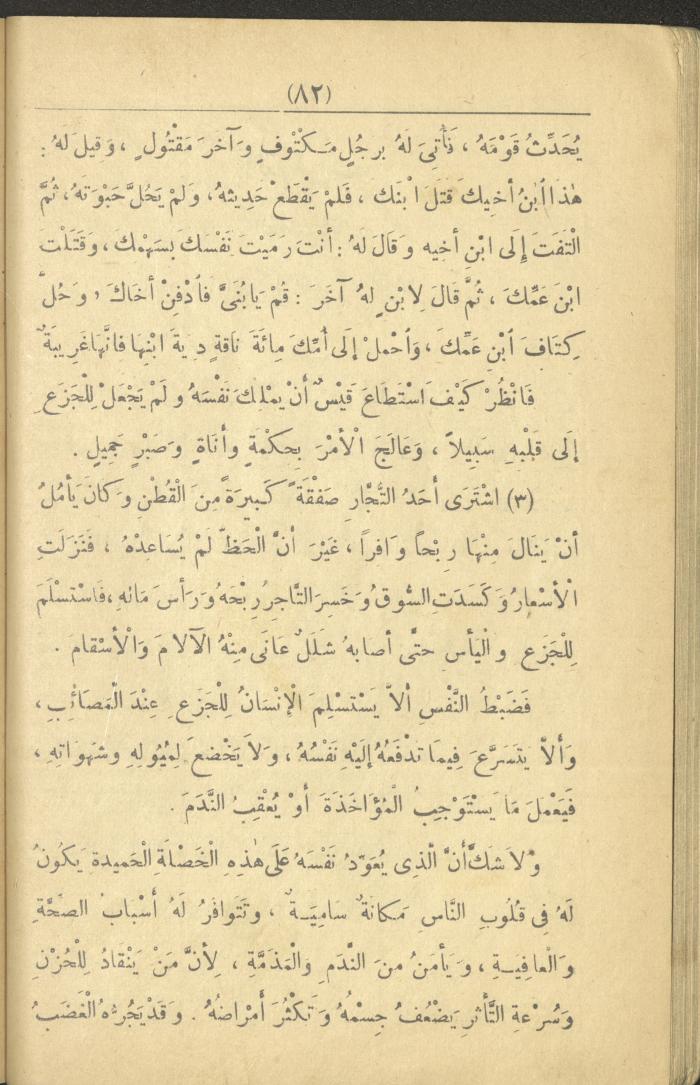 (٨٢)
يُحَدِّثُ قَوْمَهُ ، فَأُتِىَ لَهُ برجُلٍ مَكْتُوفٍ وَآخرَ مَقْتُولٍ ، وَقيلَ لهُ :
هٰذَا ٱبْنُ أخيكَ قَتَلَ ابْنَكَ ، فَلمْ يَقْطَعْ حَدِيثهُ ، وَلمْ يَحُلَّ حَبْوَتهُ ، ثُمَّ
الْتَفَتَ إِلَى ابْنِ أخِيه وَقَالَ لهُ : أنْتَ رَمَيْتَ نَفْسَكَ بسَهْمِكَ ، وَقَتَلْتَ
ابْنَ عَمِّكَ ، ثُمَّ قَالَ لِابْنٍ لهُ آخَرَ : قُمْ يَا بُنَىَّ فَٱدْفِنْ أخَاكَ ، وَحُلَّ
كِتَافَ ٱبْنِ عَمِّكَ ، وَٱحْمِلْ إلَى أُمِّكَ مِائَةَ نَاقةٍ دِيةَ ابْنِهَا فَانَّهَا غَرِيبَةٌ
فَانْظُرْ كَيْفَ اسْتَطَاعَ قَيْسٌ أَنْ يمْلِكَ نَفْسَهُ وَلَمْ يَجْعَلْ لِلْجَزَعِ
إلَى قَلْبهِ سَبِيلاً ، وَعَالَجَ الْأَمْرَ بِحكْمَةٍ وأَنَاةٍ وَصَبْرٍ جَمِيلٍ .
(٣) اشْتَرَى أَحَدُ التُّجَّارِ صَفْقَةً كَبيرَةً مِنَ الْقُطْنِ وَكَانَ يَأمُلُ
أَنْ يَنَالَ مِنْهَا رِبْحاً وَافراً ، غَيْرَ أَنَّ الْحَظَّ لَمْ يُسَاعِدْهُ ، فَنَزَلَتِ
الْأَسْعَارُ وَكَسَدَتِ السُّوقُ وَخَسِرَ التَّاجِرُ رِبْحَهُ وَرَأْسَ مَالهِ ، فَاسْتسْلَمَ
لِلْجَزَعِ وَالْيَأْسِ حتَّى أصابهُ شلَلٌ عَانَى مِنْهُ الْآلَامَ وَالْأَسْقامَ .
فَضَبْطُ النَّفْسِ أَلاَّ يَسْتسْلِمَ الْإِنْسَانُ لِلْجَزَعِ عِنْدَ الْمَصَائِبِ ،
وَأَلاَّ يتَسَرَّعَ فِيمَا تدْفَعُهُ إلَيْهِ نَفْسُهُ ، وَلَا يَخْضَعَ لِمُيُولِهِ وشَهَوَاتِهِ ،
فَيَعْمَلَ مَا يَسْتَوْجِبُ الْمُؤَاخَذَةَ أوْ يُعْقِبُ النَّدَمَ .
وَلاَ شَكَّ أَنَّ الَّذِى يُعَوّدُ نَفْسَهُ عَلَى هٰذِهِ الْخَصْلَةِ الْحَميدةِ يَكُونُ
لَهُ فِى قُلُوبِ النَّاسِ مَكانَةٌ سَامِيَةٌ ، وتَتَوافَرُ لَهُ أَسْبَابُ الصِّحَّةِ
وَالْعافِيَةِ ، وَيأمَنُ منَ النَّدَمِ وَالْمَذَمَّةِ ، لِأَنَّ مَنْ يَنْقادُ لِلْحُزْنِ
وَسُرْعةِ التَّأثرِ يَضْعُفُ جِسْمُهُ وَتَكْثُرُ أَمْرَاضُهُ . وَقَدْ يَجُرُّهُ الْغَضَبُ